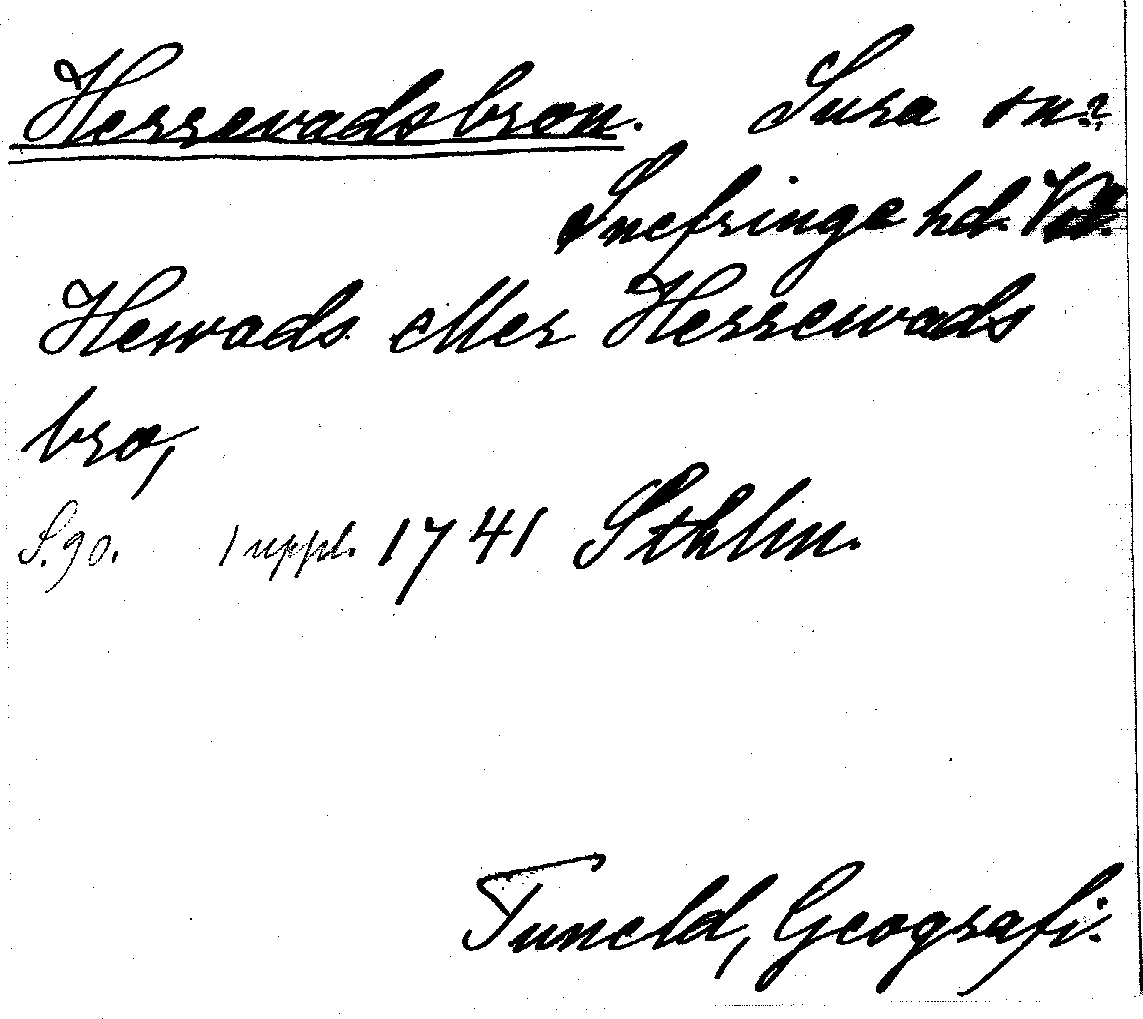 Herrevadsbron. Sura sn?
Snefringe hd.
Hewads eller Herrewads
bro,
S. 90. 1 uppl. 1741 Sthlm.
Tuneld, Geografi.